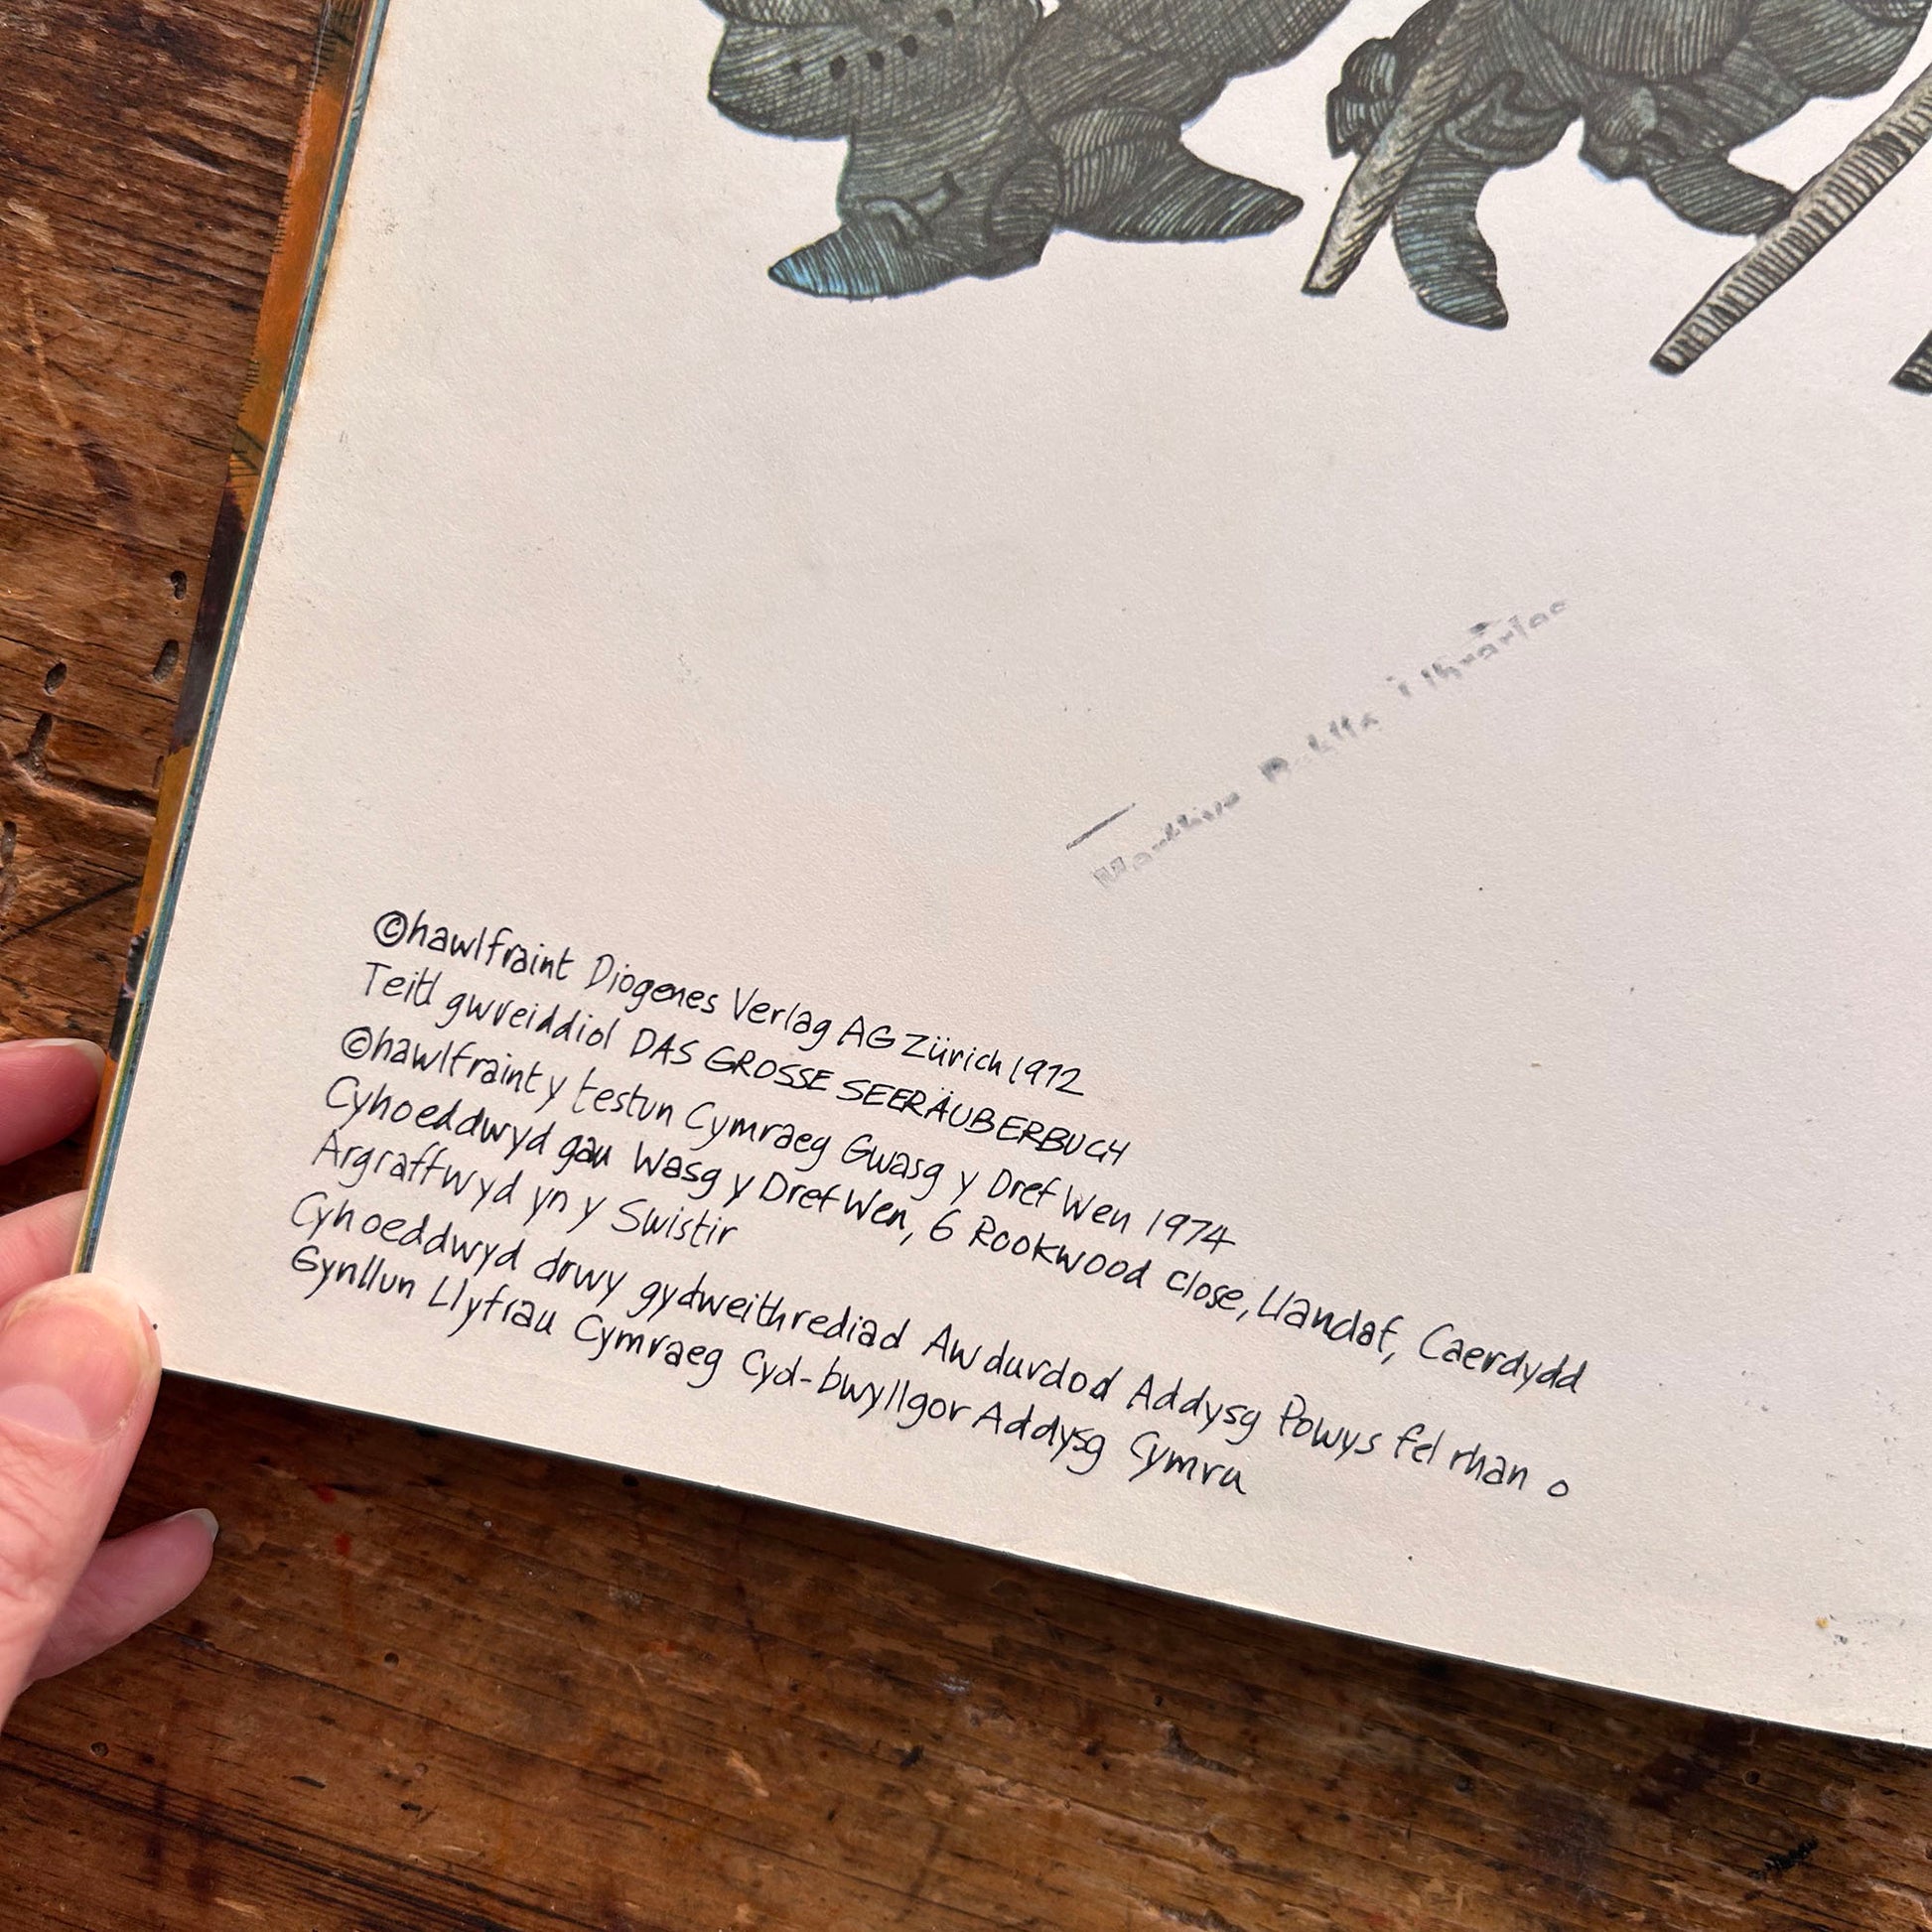 Libraries
©hawlfraint Diogenes Verlag AG Zürich 1972
Teitl gwreiddiol DAS GROSSE SEERÄUBERBUCH
©hawlfraint y testun Cymraeg Gwasg y Dref Wen 1974
Cyhoeddwyd gau Wasg y Dref Wen, 6 Rookwood Close, Llandaf, Caerdydd
Argraffwyd yn y Swistir
Cyhoeddwyd drwy gydweithrediad Awdurdod Addysg Powys fel rhan o
Gynllun Llyfrau Cymraeg Cyd-bwyllgor Addysg Cymru